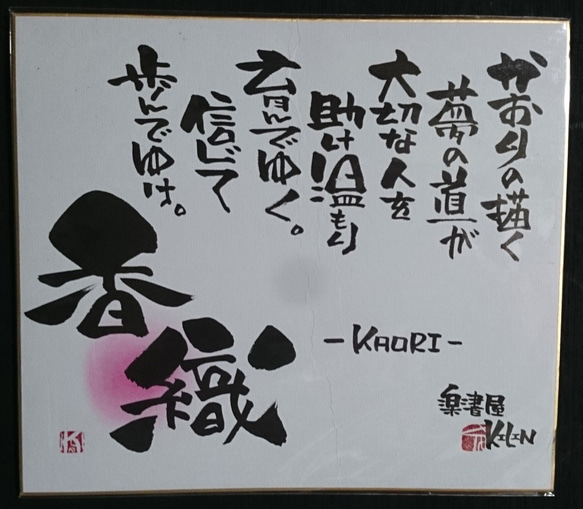 かおりの描く
夢の道が
大切な人を
助け温もり
育んでゆく。
信じて
歩んでゆけ。
香織
-KAORI-
楽書屋
KiLiN
K